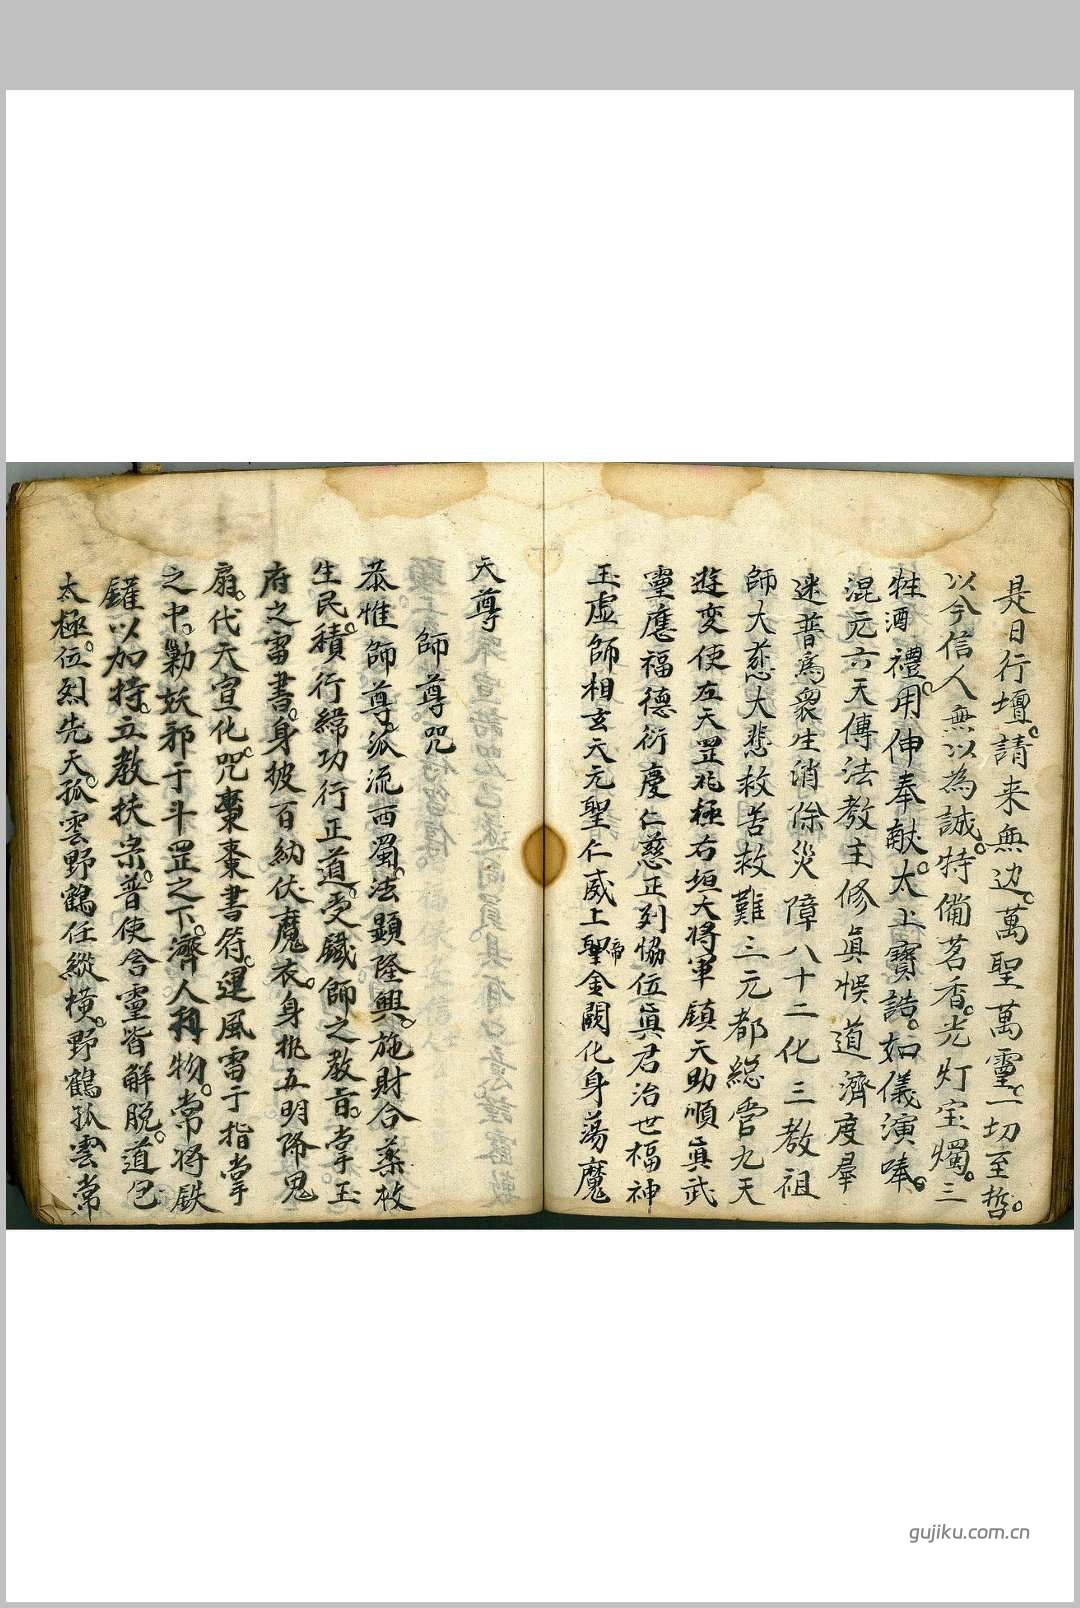 是日行壇。請来無边。萬聖萬靈。一切至哲。
以今信人無以為誠。特備茗香。光灯宝燭。三
牲酒禮。用伸奉献。太上寶誥。如儀演唪。
混元六天傳法教主修眞悮道濟度羣
迷普爲衆生消除災障八十二化三教祖
師大慈大悲救苦救難三元都総雷九天
遊变使左天罡北極右垣大将軍鎮天助順眞武
靈應福德衍慶仁慈正列恊位眞君治世福神
玉虛師相玄天元聖仁威上聖帝金闕化身蕩魔
天尊
師尊咒
恭惟師尊。派流西蜀。法顕隆興。施財合薬救
生民。積行締功行正道。受鐵師之教旨。掌玉
府之雷書。身披百納伏魔衣。身挑五明降鬼
扇。代天宣化。咒棗棗書符。運風雷于指掌
之中。勦妖邪于斗罡之下。濟人利物。常将鉄
鑵以加持。立教扶宗。普使含靈皆解脱。道包
太極。位烈先天。孤雲野鶴任縱橫。野鶴孤雲常
gujiku.com.cn